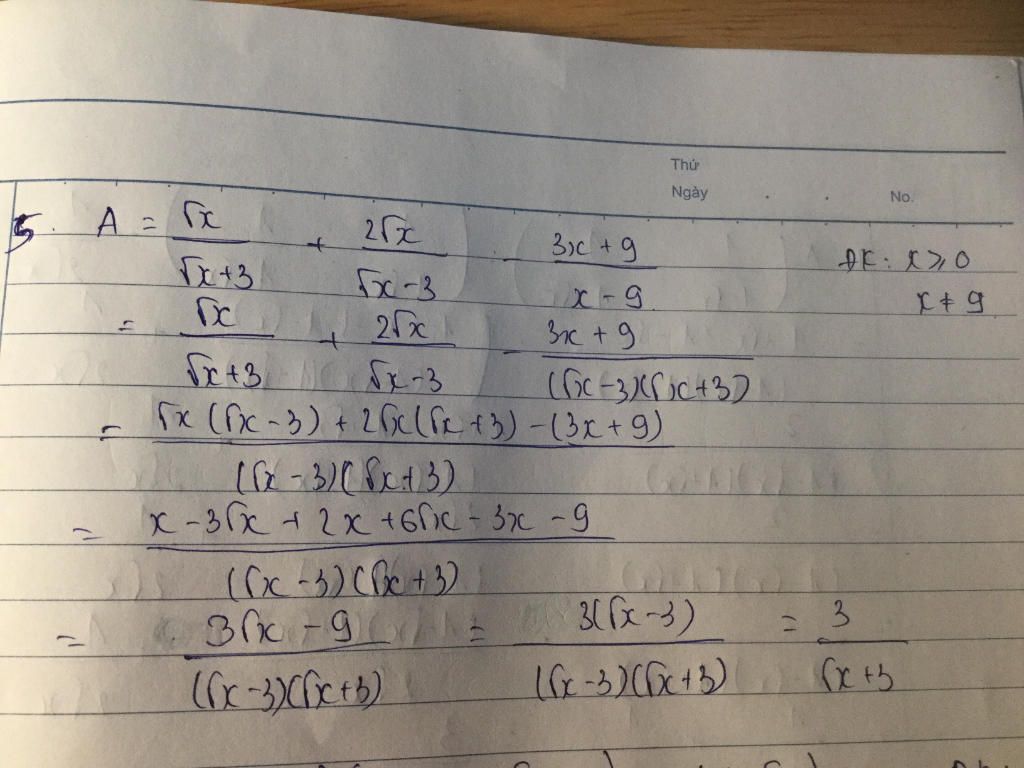 Thứ
Ngày
No.
5. A = √x/(√x+3) + 2√x/(√x-3) - (3x+9)/(x-9) ĐK: x ⩾ 0
x ≠ 9
= √x/(√x+3) + 2√x/(√x-3) - (3x+9)/((√x-3)(√x+3))
= (√x(√x-3) + 2√x(√x+3) - (3x+9))/((√x-3)(√x+3))
= (x - 3√x + 2x + 6√x - 3x - 9)/((√x-3)(√x+3))
= (3√x - 9)/((√x-3)(√x+3)) = 3(√x-3)/((√x-3)(√x+3)) = 3/(√x+3)